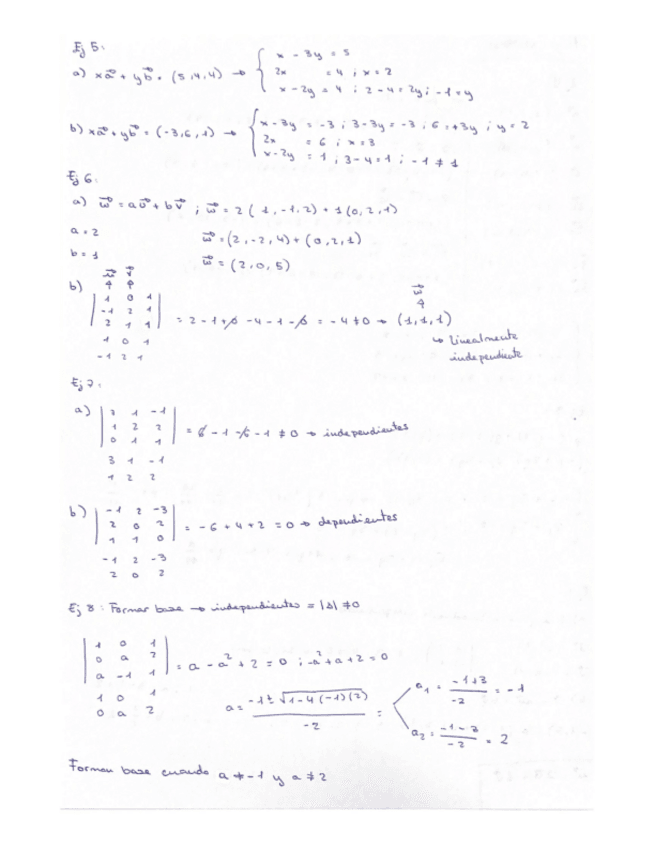 Ej 5:
a) xa⃗ + yb⃗ = (5,4,4) → { x - 3y = 5
2x = 4 ; x = 2
x - 2y = 4 ; 2 - 4 = 2y ; -1 = y
b) xa⃗ + yb⃗ = (-3,6,1) → { x - 3y = -3 ; 3 - 3y = -3 ; 6 = +3y ; y = 2
2x = 6 ; x = 3
x - 2y = 1 ; 3 - 4 = 1 ; -1 ≠ 1
Ej 6:
a) w⃗ = au⃗ + bv⃗ ; w⃗ = 2(1,-1,2) + 1(0,2,1)
a = 2 w⃗ = (2,-2,4) + (0,2,1)
b = 1 w⃗ = (2,0,5)
b) | 1 0 1 |
| -1 2 1 | = 2 - 1 + 0 - 4 - 1 - 0 = -4 ≠ 0 → (1,1,1)
| 2 1 1 |
1 0 1 ↳ linealmente
-1 2 1 independiente
Ej 7:
a) | 3 1 -1 |
| 1 2 2 | = 6 - 1 - 6 - 1 ≠ 0 → independientes
| 0 1 1 |
3 1 -1
1 2 2
b) | -1 2 -3 |
| 2 0 2 | = -6 + 4 + 2 = 0 → dependientes
| 1 1 0 |
-1 2 -3
2 0 2
Ej 8: Formar base → independientes = |Δ| ≠ 0
| 1 0 1 |
| 0 a 2 | = a - a² + 2 = 0 ; -a² + a + 2 = 0
| a -1 1 |
1 0 1
0 a 2
a = (-1 ± √(1 - 4(-1)(2))) / -2 =
a₁ = (-1+3)/-2 = -1
a₂ = (-1-3)/-2 = 2
Forman base cuando a ≠ -1 y a ≠ 2